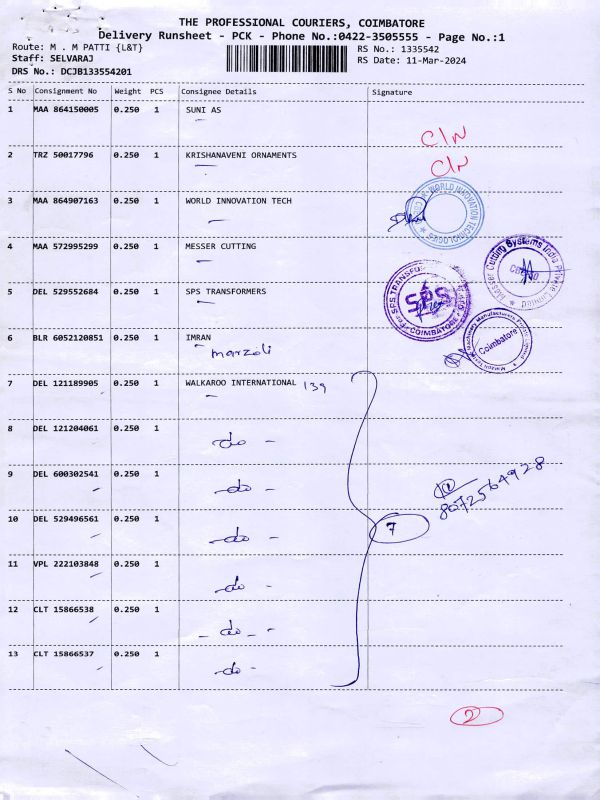 THE PROFESSIONAL COURIERS, COIMBATORE
Delivery Runsheet - PCK - Phone No.:0422-3505555 - Page No.:1
Route: M . M PATTI {L&T}
RS No.: 1335542
Staff: SELVARAJ
RS Date: 11-Mar-2024
DRS No.: DCJB133554201
S No Consignment No Weight PCS Consignee Details Signature
1 MAA 864150005 0.250 1 SUNI AS
C/N
2 TRZ 50017796 0.250 1 KRISHANAVENI ORNAMENTS
C/N
3 MAA 864907163 0.250 1 WORLD INNOVATION TECH
WORLD INNOVATION TECHNOLOGIES
4 MAA 572995299 0.250 1 MESSER CUTTING
Messer Cutting Systems India Private Limited
5 DEL 529552684 0.250 1 SPS TRANSFORMERS
For SPS TRANSFO
SPS
COIMBATORE
6 BLR 6052120851 0.250 1 IMRAN
marzoli
Coimbatore
7 DEL 121189905 0.250 1 WALKAROO INTERNATIONAL 139
8 DEL 121204061 0.250 1 -do-
9 DEL 600302541 0.250 1 -do-
8072564928
10 DEL 529496561 0.250 1 -do-
7
11 VPL 222103848 0.250 1 -do-
12 CLT 15866538 0.250 1 -do-
13 CLT 15866537 0.250 1 -do-
2